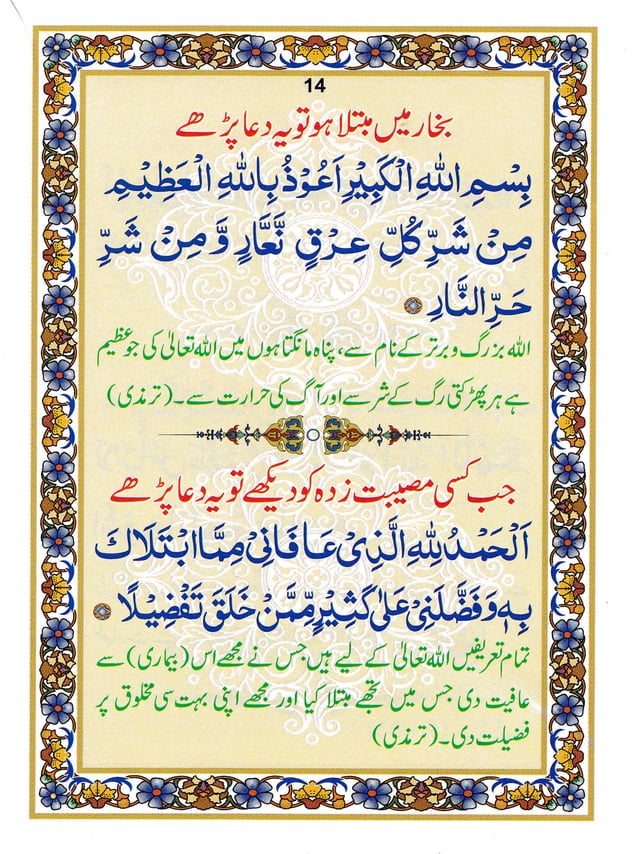 14
بخار میں مبتلا ہو تو یہ دعا پڑھے
بِسْمِ اللهِ الْكَبِيْرِ اَعُوْذُ بِاللهِ الْعَظِيْمِ
مِنْ شَرِّ كُلِّ عِرْقٍ نَّعَّارٍ وَّمِنْ شَرِّ
حَرِّ النَّارِ
اللہ بزرگ و برتر کے نام سے، پناہ مانگتا ہوں میں اللہ تعالیٰ کی جو عظیم
ہے ہر پھڑکتی رگ کے شر سے اور آگ کی حرارت سے۔ (ترمذی)
جب کسی مصیبت زدہ کو دیکھے تو یہ دعا پڑھے
اَلْحَمْدُ لِلّٰهِ الَّذِیْ عَافَانِیْ مِمَّا ابْتَلَاكَ
بِهٖ وَفَضَّلَنِیْ عَلٰی كَثِيْرٍ مِّمَّنْ خَلَقَ تَفْضِيْلًا
تمام تعریفیں اللہ تعالیٰ کے لیے ہیں جس نے مجھے اس (بیماری) سے
عافیت دی جس میں تجھے مبتلا کیا اور مجھے اپنی بہت سی مخلوق پر
فضیلت دی۔ (ترمذی)